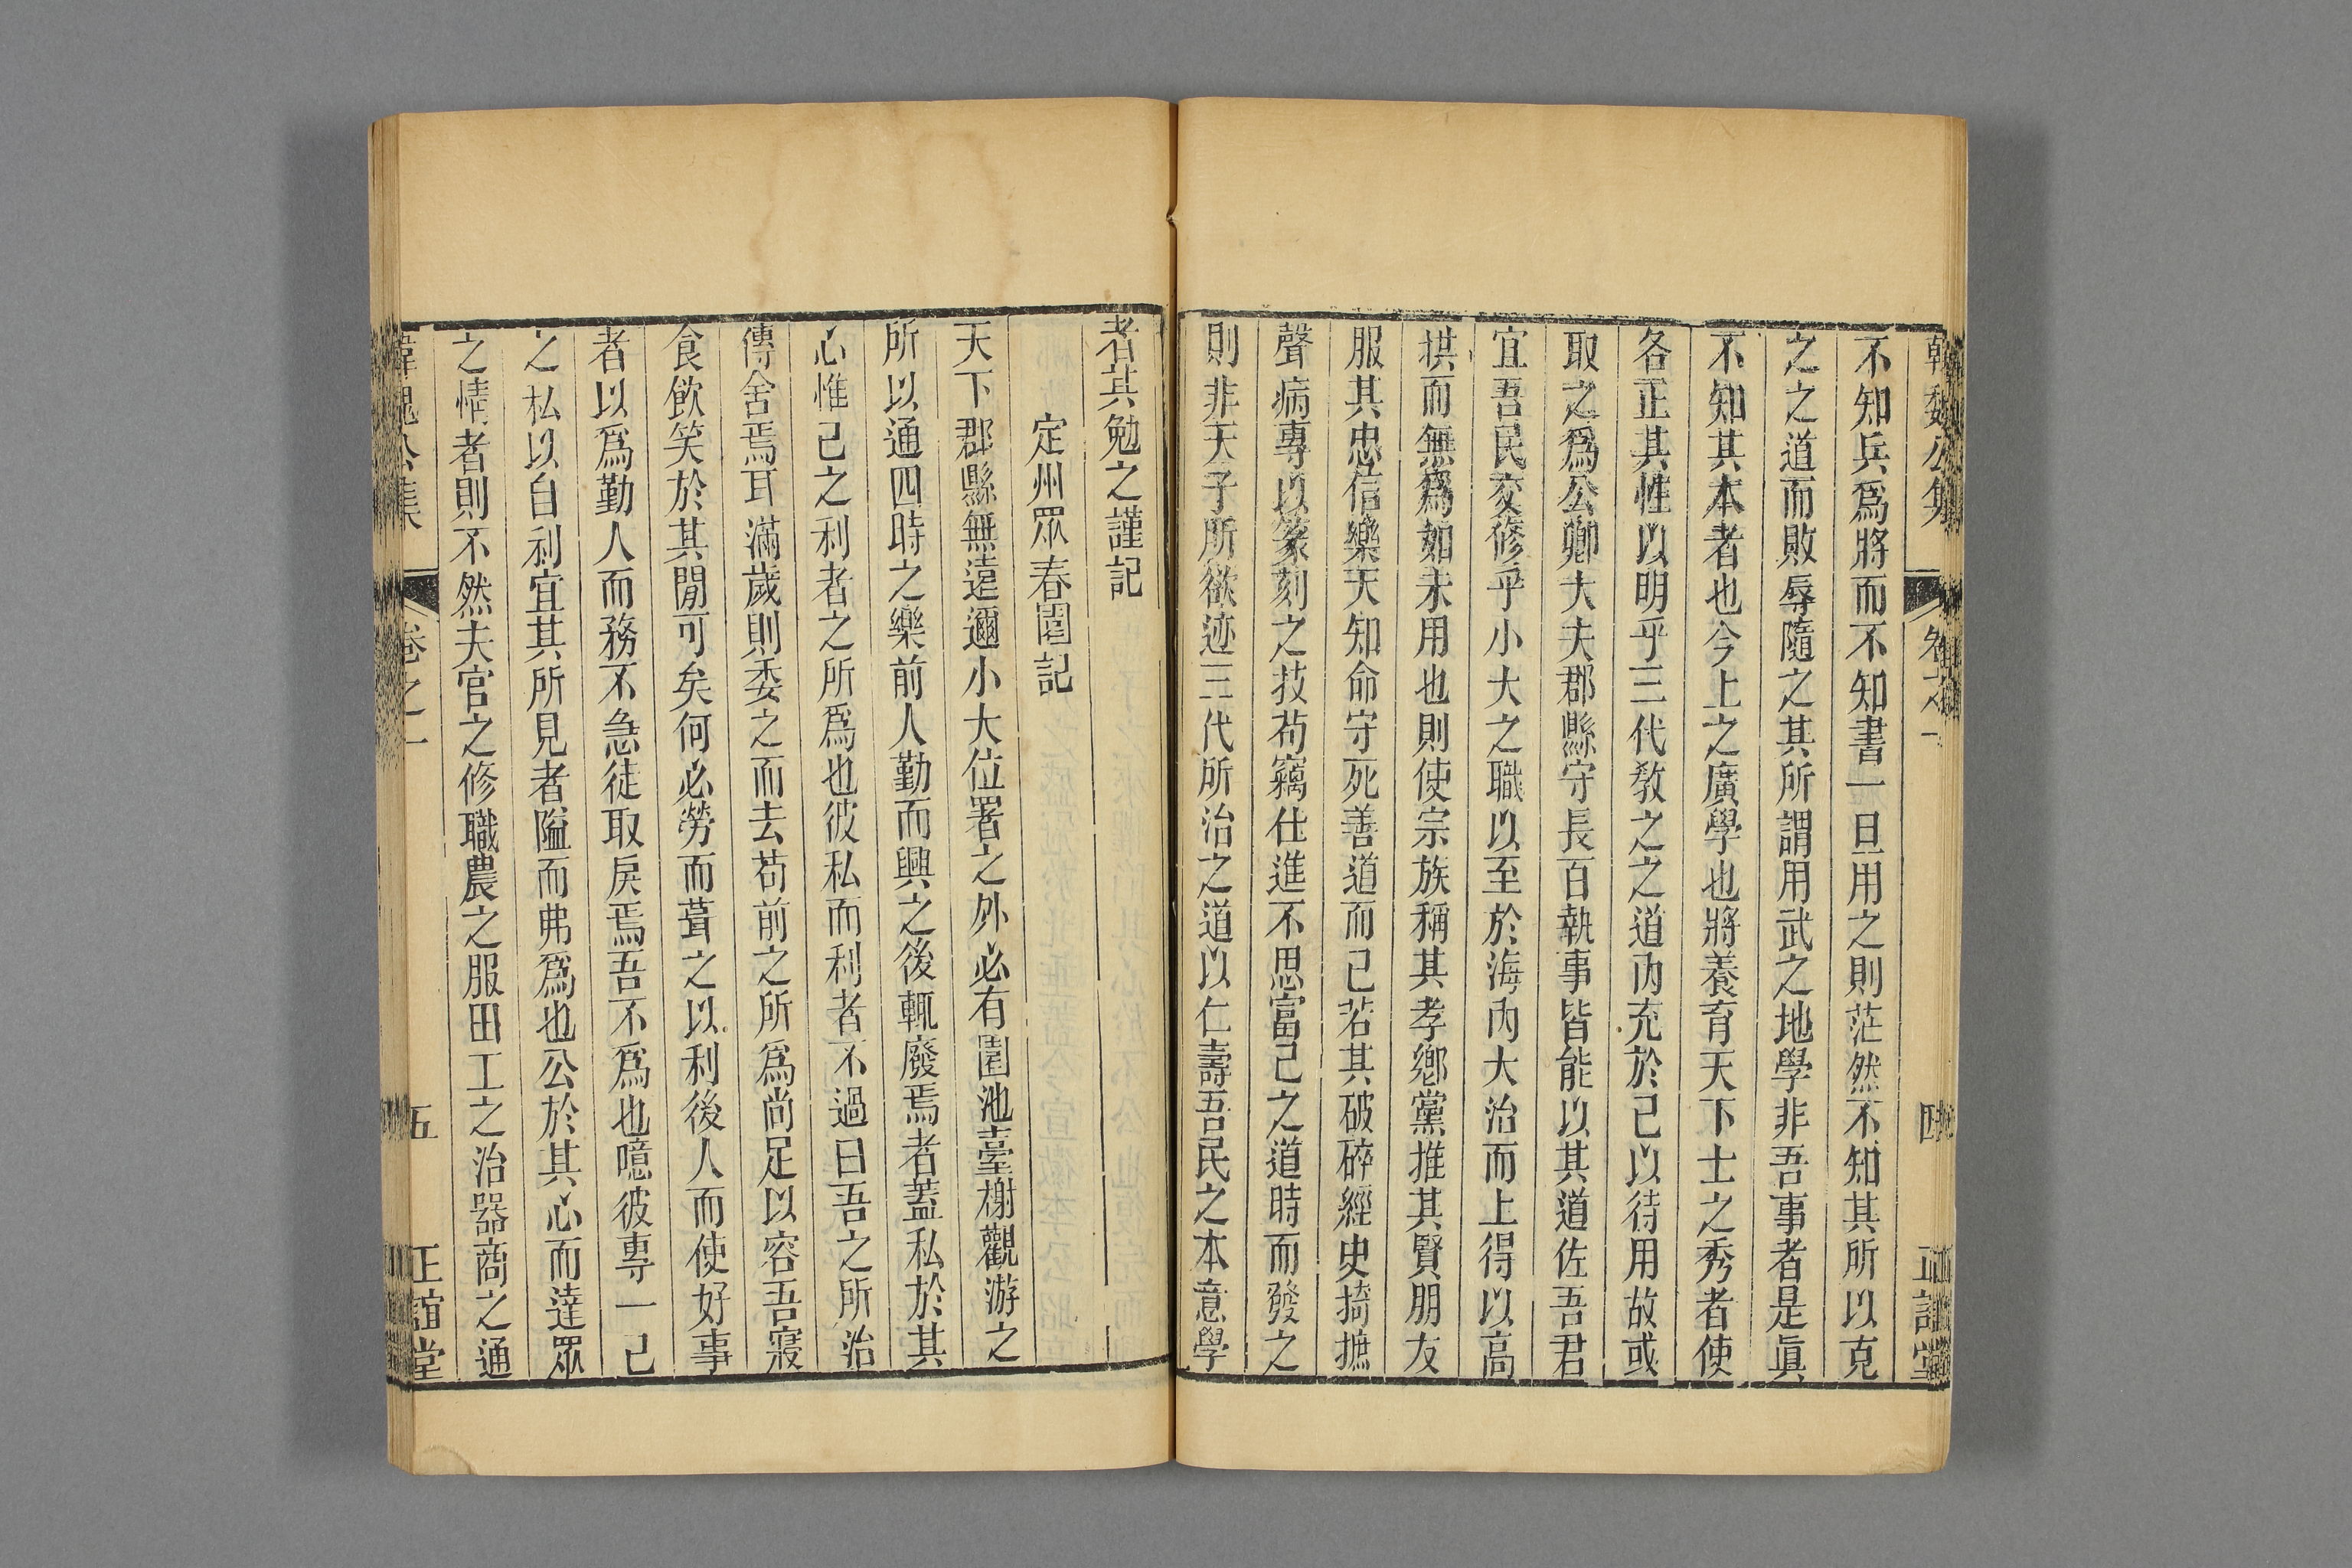 韓魏公集 卷之一 四 正誼堂
不知兵爲將而不知書一旦用之則茫然不知其所以克
之之道而敗辱隨之其所謂用武之地學非吾事者是眞
不知其本者也今上之廣學也將養育天下士之秀者使
各正其性以明乎三代教之之道內充於己以待用故或
取之爲公卿大夫郡縣守長百執事皆能以其道佐吾君
宜吾民交修乎小大之職以至於海內大治而上得以高
拱而無爲如未用也則使宗族稱其孝鄉黨推其賢朋友
服其忠信樂天知命守死善道而已若其破碎經史掎摭
聲病專以篆刻之技苟竊仕進不思富己之道時而發之
則非天子所欲迹三代所治之道以仁壽吾民之本意學
者其勉之謹記
定州眾春園記
天下郡縣無遠邇小大位署之外必有園池臺榭觀游之
所以通四時之樂前人勤而興之後輒廢焉者蓋私於其
心惟己之利者之所爲也彼私而利者不過曰吾之所治
傳舍焉耳滿歲則委之而去苟前之所爲尚足以容吾寢
食飲笑於其閒可矣何必勞而葺之以利後人而使好事
者以爲勤人而務不急徒取戾焉吾不爲也噫彼專一己
之私以自利宜其所見者隘而弗爲也公於其心而達眾
之情者則不然夫官之修職農之服田工之治器商之通
韓魏公集 卷之一 五 正誼堂